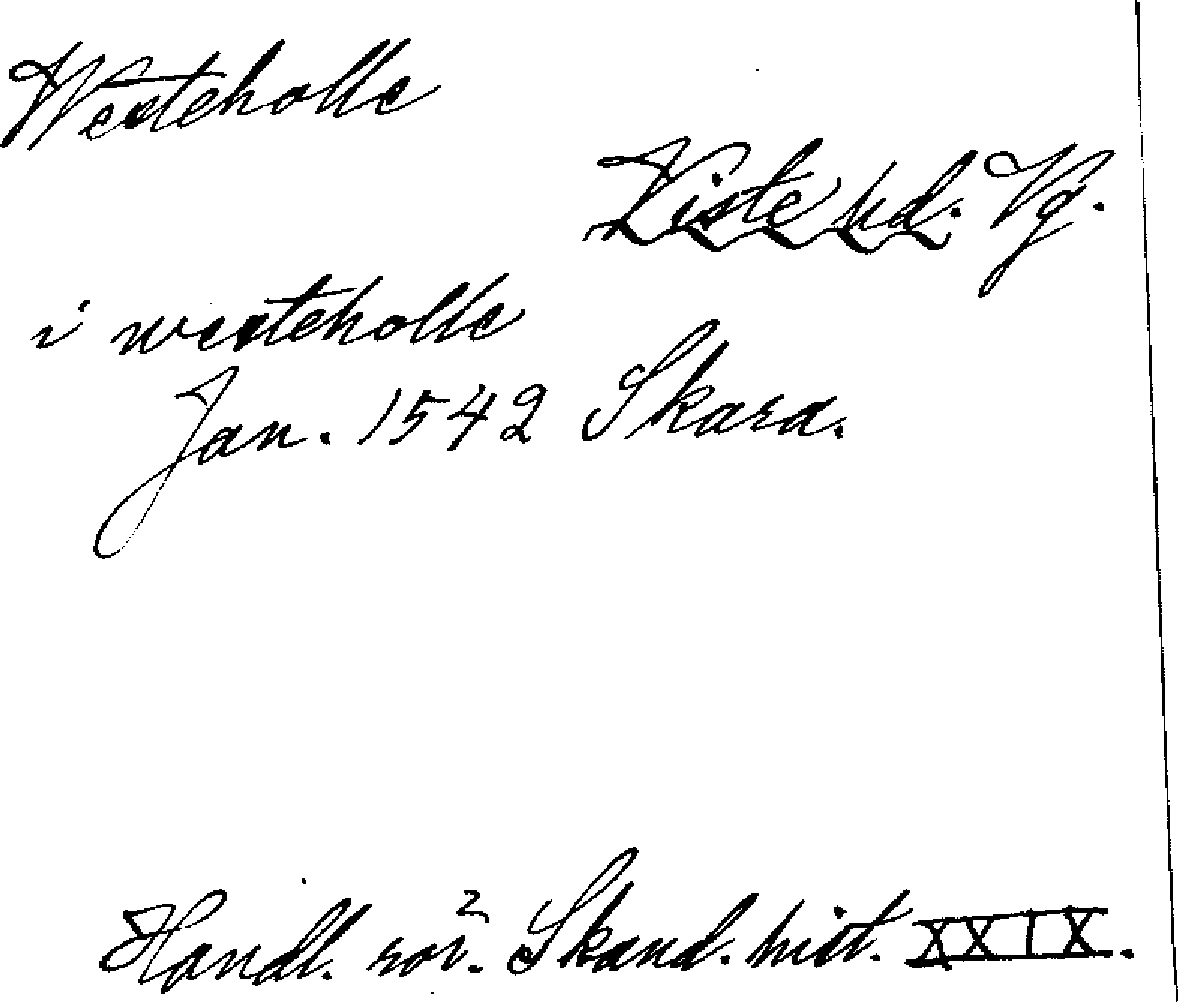 Westeholle
Viste hd. Vg.
i westeholle
Jan. 1542 Skara.
Handl. rör. Skand. hist. XXIX.